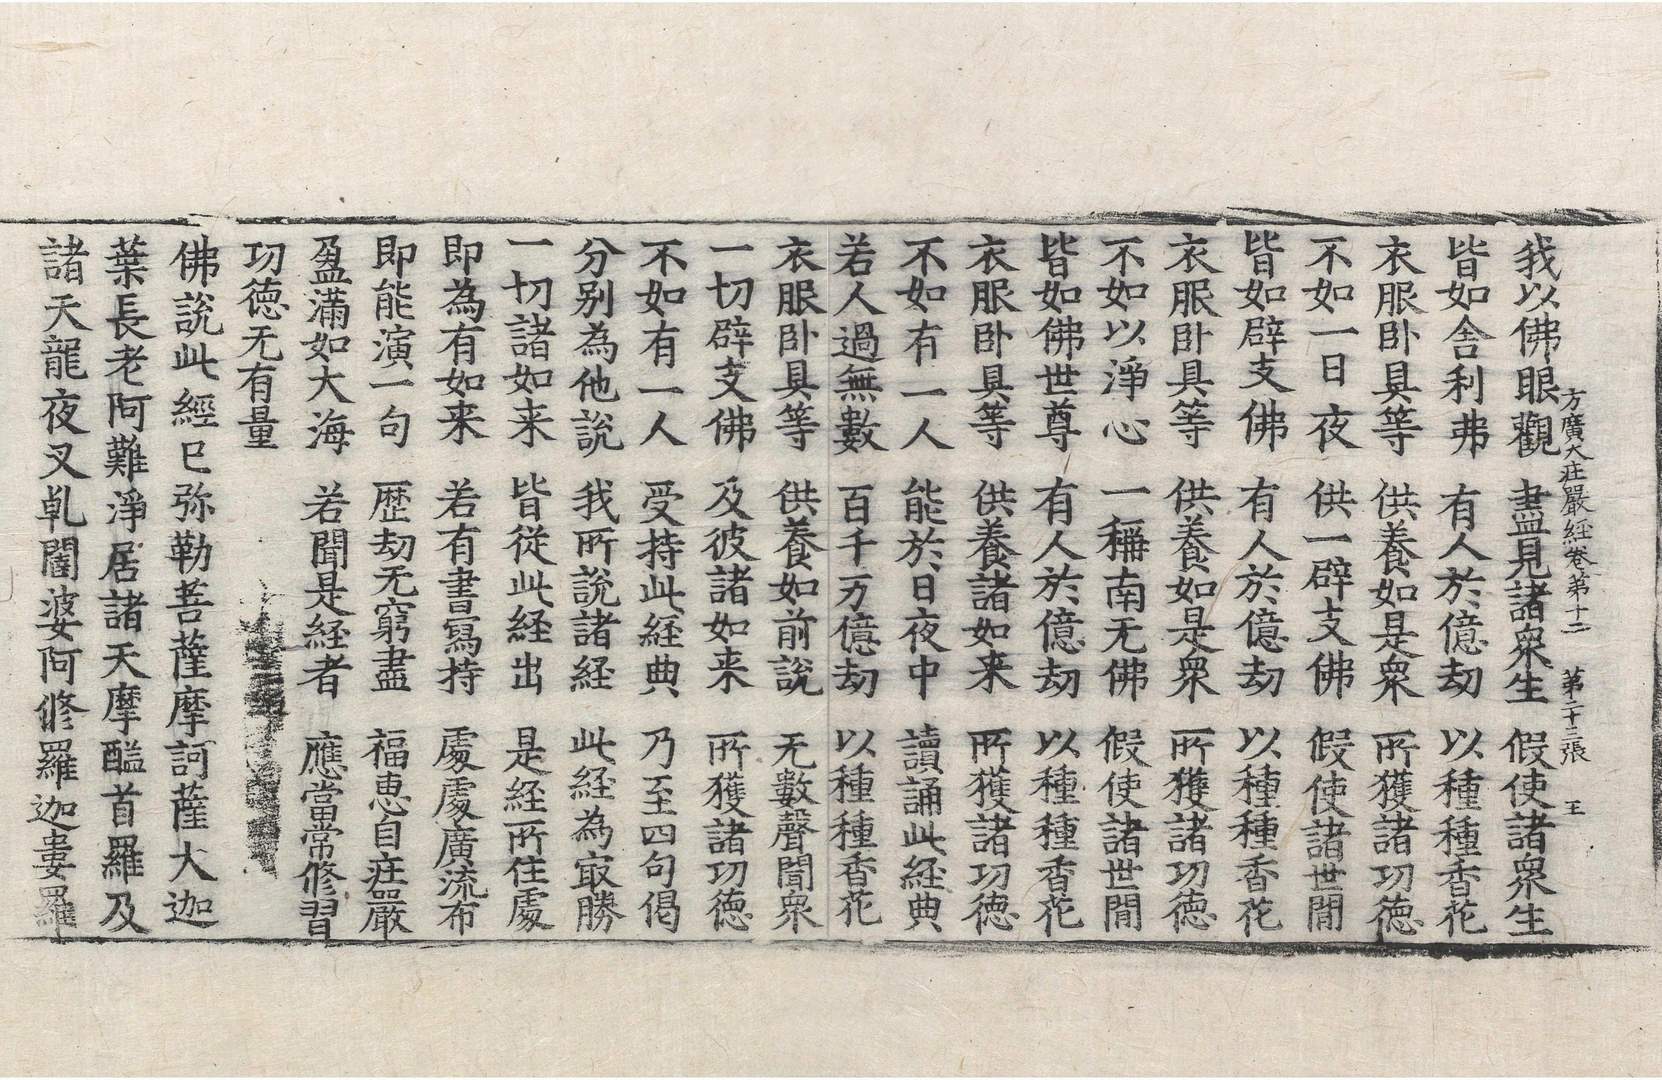 方廣大庄嚴経卷第十二 第二十三張 王
我以佛眼觀 盡見諸衆生 假使諸衆生
皆如舍利弗 有人於億劫 以種種香花
衣服卧具等 供養如是衆 所獲諸功徳
不如一日夜 供一辟支佛 假使諸世閒
皆如辟支佛 有人於億劫 以種種香花
衣服卧具等 供養如是衆 所獲諸功徳
不如以淨心 一稱南无佛 假使諸世閒
皆如佛世尊 有人於億劫 以種種香花
衣服卧具等 供養諸如来 所獲諸功徳
不如有一人 能於日夜中 讀誦此経典
若人過無數 百千万億劫 以種種香花
衣服卧具等 供養如前說 无數聲聞衆
一切辟支佛 及彼諸如来 所獲諸功徳
不如有一人 受持此経典 乃至四句偈
分别為他說 我所說諸経 此経為㝡勝
一切諸如来 皆從此経出 是経所住處
即為有如来 若有書寫持 處處廣流布
即能演一句 歴劫无窮盡 福恵自庄嚴
盈滿如大海 若聞是経者 應當常修習
功徳无有量
佛說此經已弥勒菩薩摩訶薩大迦
葉長老阿難淨居諸天摩醯首羅及
諸天龍夜叉乹闥婆阿修羅迦婁羅